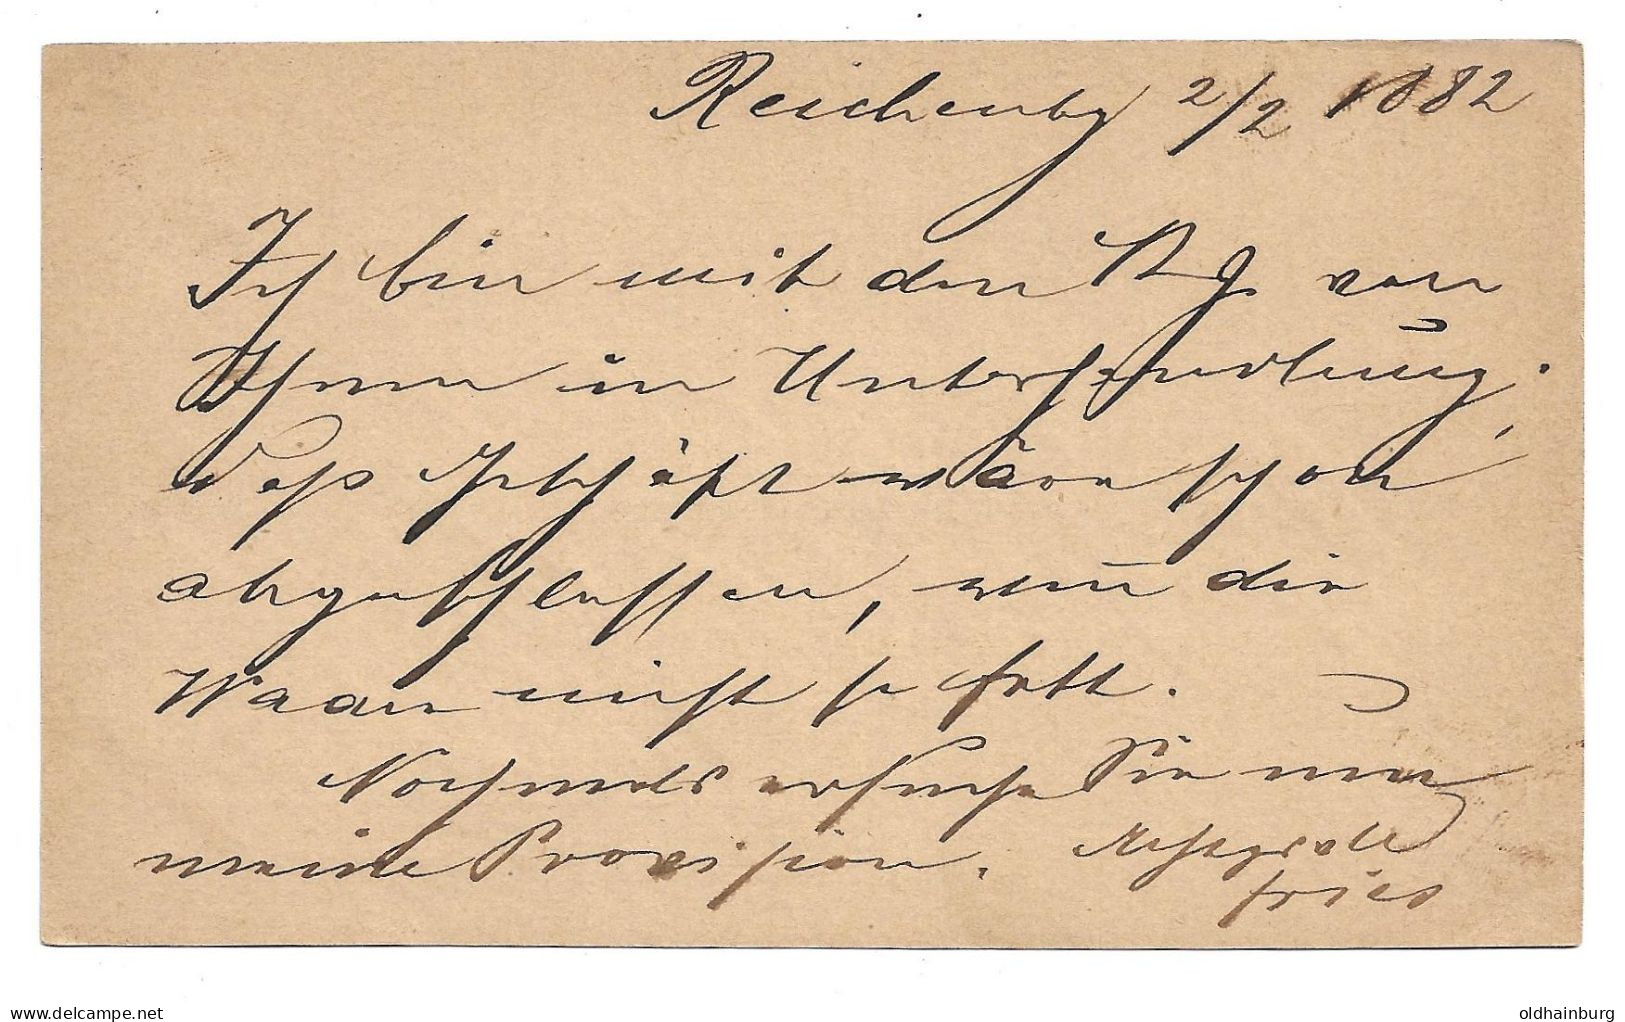 Reichenbg 2/2 1882
Ich bin mit den von
Ihnen in Unterhandlung;
das Geschäft wäre schon
abgeschlossen, wenn die
Waare nicht so fett.
Nochmals ersuche Sie um
meine Provision. Achtungsvoll
Fries
www.delcampe.net
oldhainburg